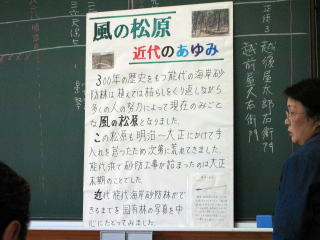 風の松原
近代のあゆみ
300年の歴史をもつ能代の海岸砂
防林は植えては枯らしをくり返しながら
多くの人の努力によって現在のみごと
な 風の松原 となりました。
この松原も明治～大正にかけて手
入れを怠ったため次第に荒れてきました。
能代浜で砂防工事が始まったのは大正
末期のことでした
近代能代海岸砂防林がで
きるまでを国有林の写真を中
心にたどってみました。
越後屋太郎右衛門
越前屋久右衛門